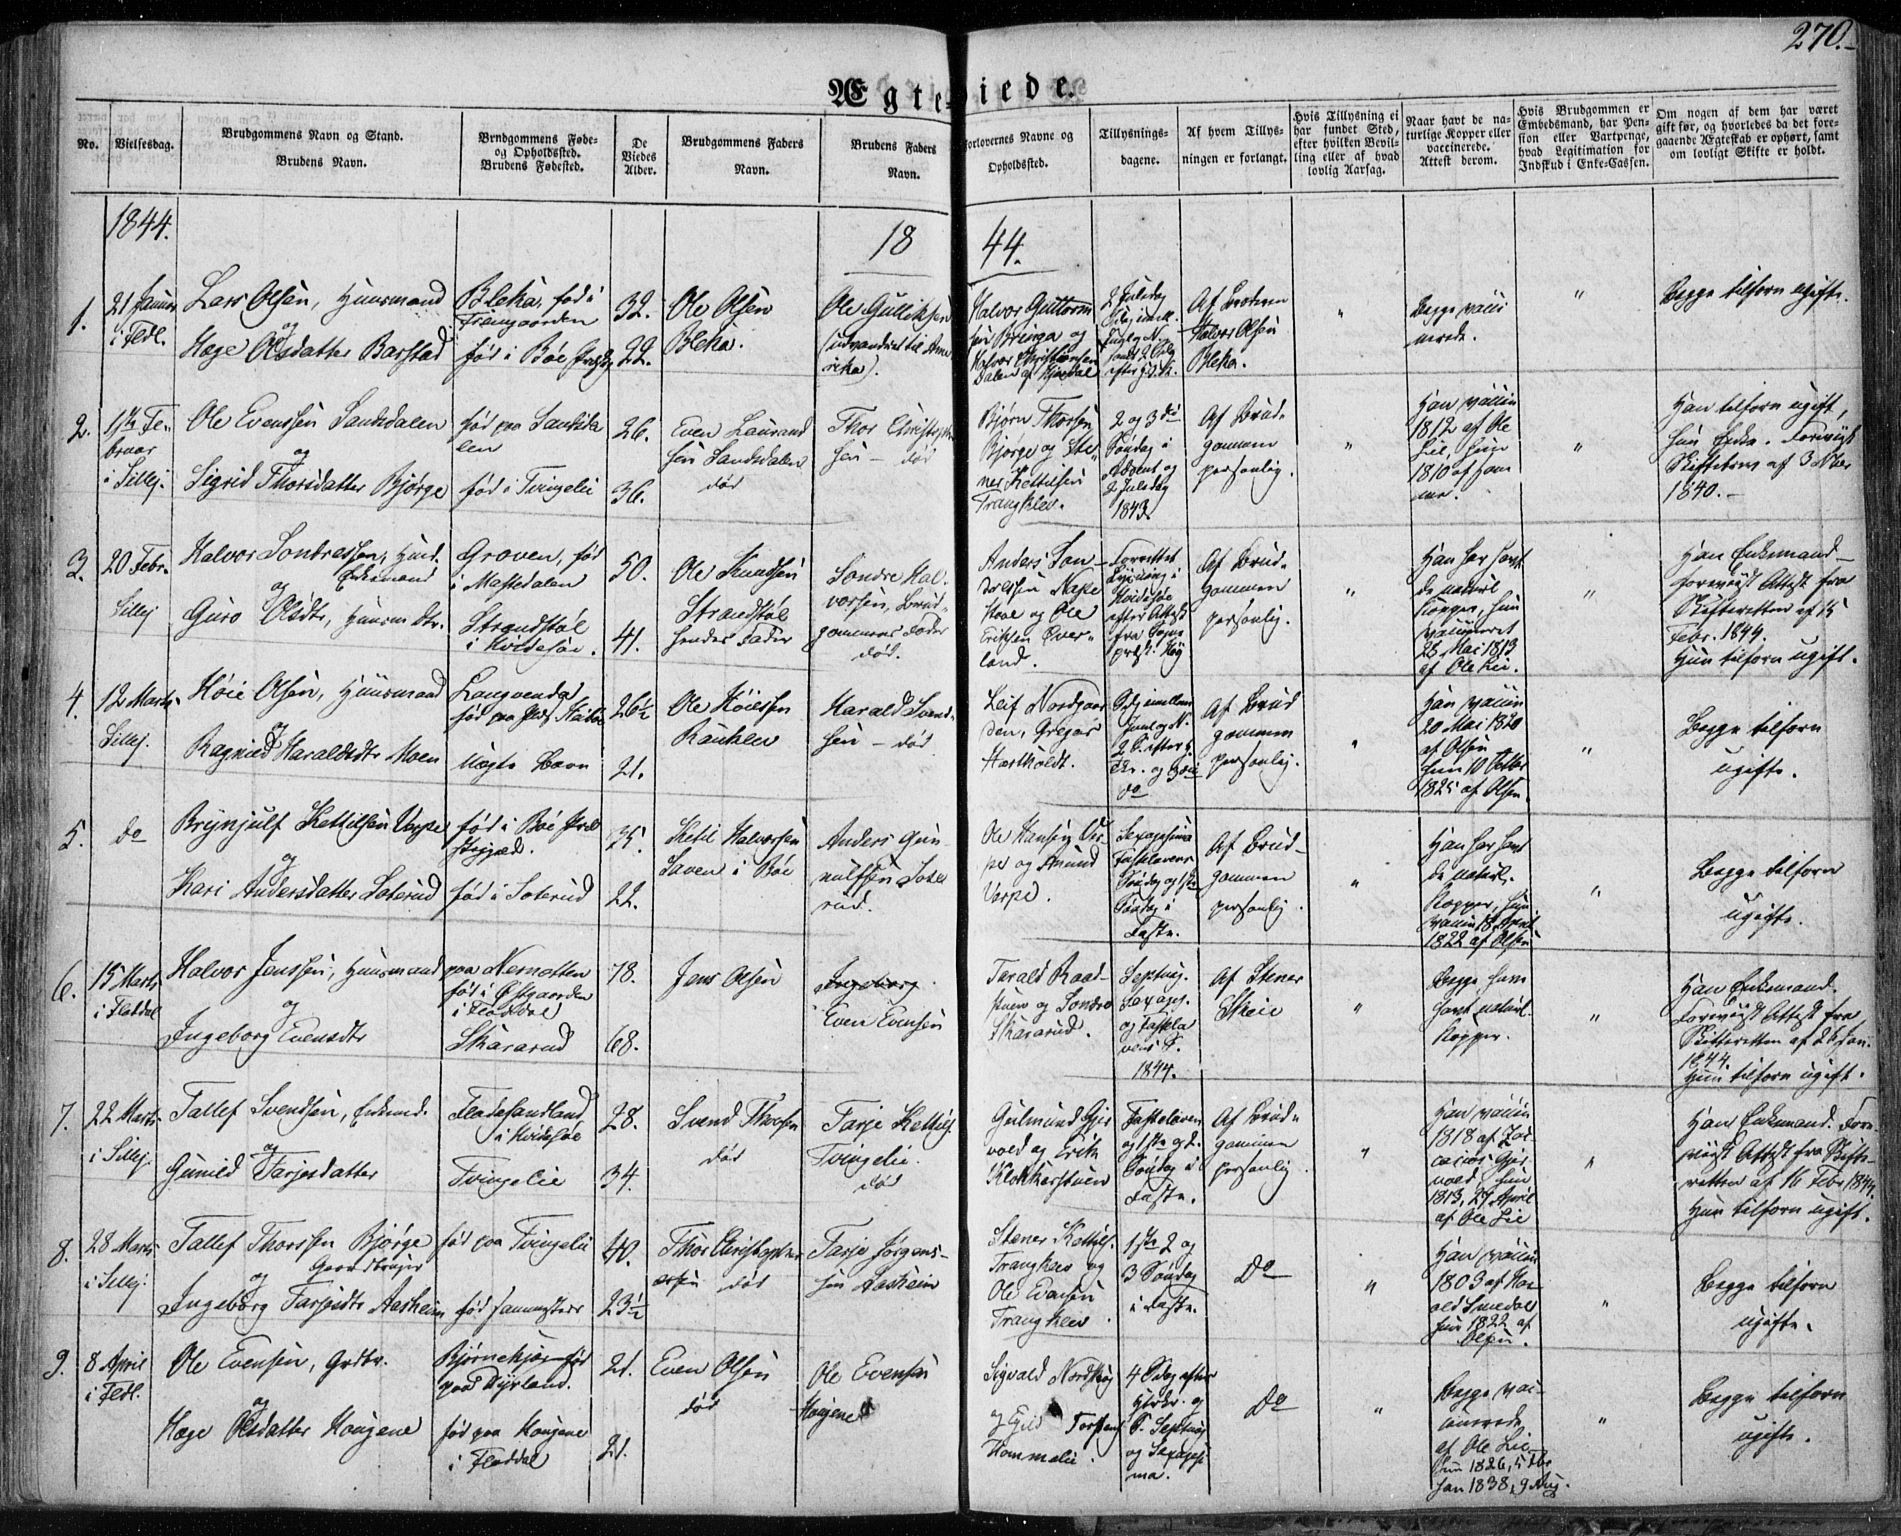 270.
Ægteviede.
No.
Vielsesdag.
Brudgommens Navn og Stand.
Brudens Navn.
Brudgommens Føde-
og Opholdssted.
Brudens Fødested.
De
Viedes
Alder.
Brudgommens Faders
Navn.
Brudens Faders
Navn.
Forlovernes Navne og
Opholdssted.
Tillysnings-
dagene.
Af hvem Tillys-
ningen er forlangt.
Hvis Tillysning ei
har fundet Sted,
efter hvilken Bevil-
ling eller af hvad
lovlig Aarsag.
Naar havt de na-
turlige Kopper eller
vaccinerede.
Attest derom.
Hvis Brudgommen er
Embedsmand, har Pen-
sion eller Vartpenge,
hvad Legitimation for
Indskud i Enke-Cassen.
Om nogen af dem har været
gift før, og hvorledes da det fore-
gaaende Ægteskab er ophørt, samt
om lovligt Skifte er holdt.
1844.
18
44.
1.
21 Januar
i Fldl.
Lars Olsen, Huusmand
og
Hæge Olsdatter Barstad
Bleka, fød i
født i Bøe Præstg.
32.
22.
Ole Olsen
Bleka.
Ole Gulliksen
(udvandret til Ame
rika).
Halvor Guttorm
sen Bringa og
Halvor Christensen
Dalen af Hjerdal
2 Juledag
Af Broderen
Halvor Olsen
Bleka.
"
Begge vacci
nerede.
"
Begge tilforn ugifte.
2.
1ste Fe-
bruar
i Sillej.
Ole Evensen Sandsdalen
og
Sigrid Thorsdatter Bjørge
fød paa Sandsda
len
fød i Tvingelie
26.
36.
Even Laurand
sen Sandsdalen
død
Thor Christoph
sen – død
Bjørn Thorsen
Bjørge og Ste-
ner Kettilsen
Trangklev.
2 og 3die
Søndag i
Advent og
2 Juledag
1843.
Af Brud-
gommen
personlig.
"
Han vaccin
1812 af Ole
Lie, hun
1810 af sam
me.
"
Han tilforn ugift,
hun Enke. Foreviist
Skiftebrev af 3
1840.-
3.
20 Febr.
Sillej
Halvor Sondresen, Huusm.
Enkemand
og
Guro Olsdtr, Huusm dtr.
Groven, fød
i Mastedalen
Strandstøl
i Hvidesøe.
50.
41.
Ole Knudsen
Strandstøl
hendes Fader
Sondre Hal-
vorsen, Brud-
gommens Fader
død.
Anders Son-
dresen Nape
og Ole
Eriksen Øver-
land.
Forrettet
Lysning i
Hvidesøe
efter Attest
fra Sogne
præst Høy
Af Brud-
gommen
personlig.
"
Han har havt
de naturl
Kopper, hun
vaccineret
28 Mai 1813
af Ole Lie.
"
Han Enkemand
foreviist Attest fra
Skifteretten af 15
Febr. 1844.
Hun tilforn ugift.
4.
12 Marts.
Sillej.
Høie Olsen, Huusmand
og
Ragnild Haraldsdtr Moen
Langvenda
Uægte Barn
26½
21.
Ole Høiesen
Rauklev
Harald Svend-
sen – død
Leif Nordgaar
den, Gregar
Hartholdt.
Sdg imellem
Juul og N.
2 S. efter h.
3 Kr. og 3die
do
Af Brud
gommen
personlig.
"
Han vaccin
20 Mai 1820
af Olsen
hun 10 Octbr
1825 af Olsen.
"
Begge tilforn
ugifte.
5.
do
Brynjulf Kettilsen Verpe
og
Kari Andersdatter Soterud
fød i Bøe Præ
stegjæld.
fød i Soterud
25.
22.
Ketil Halvorsen
Saven i Bøe
Anders Gun
nulfsen Sote
rud.
Ole Hansen Ver-
pe og Amund
Verpe.
Sexagesima
Fastelavens
Søndag og 1ste
Søndag i
Faste.
Af Brud-
gommen
personlig.
"
Han har havt
de naturl.
Kopper, hun
vaccin 18 April
1822 af Olsen
"
Begge tilforn
ugifte.
6.
15 Marts
i Flatdal
Halvor Jensen, Huusmand
og
Ingeborg Evensdtr
paa Nernatten
fød i Østgaarden
i Flatdal
Skararud
78.
68.
Jens Olsen
Ingeborg
Even Evensen
Tarald Raad-
stuen og Sondre
Skararud.
Septuag.
Sexages.
og Fastela
vens S.
1844.
Af Stener
Skeie
"
Begge have
havt naturl.
Kopper.
"
Han Enkemand.
Foreviist Attest fra
Skifteretten af 26 Jan.
1844.
Hun tilforn ugift.
7.
22 Marts
i Sillej
Tallef Svendsen, Enkemd.
og
Gunild Tarjesdatter
Fladesandland
i Hvidesøe
Tvingelie
28.
34.
Svend Thorsen
død
Tarje Kettils.
Tvingelie.
død
Gulmund Gjer
vold og Erik
Klokkerstuen
Fastelaven
og 1ste og 2.
Søndag i
Faste.
Af Brud-
gommen
personlig
"
Han vaccin
1818 af Zac
carias Gjer
vold, hun
1813, 29 April
af Ole Lie
"
Han Enkemand. Fore-
viist Attest fra Skifte-
retten af 16 Febr 1844.
Hun tilforn ugift.
8.
28 Marts
i Sillej.
Tallef Thorsen Bjørge
Gaardbruger
og
Ingeborg Tarjesdtr Aasheim
fød paa Tvingelie
fød sammesteds
40.
23½
Thor Christopher
sen død
Tarje Jørgens-
sen Aasheim
Stener Kettils.
Trangklev og
Ole Evensen
Trangklev.
1ste 2 og
3 Søndag
i Faste.
Do
"
Han vaccin
1803 af Har
ald Smedal
hun 1822 af
Olsen.
"
Begge tilforn
ugifte.
9.
8 April
i Fldl.
Ole Evensen, Grdbr.
og
Hæge Olsdatter Haugene
Bjørnekjær fød
paa Dyrland.
fød paa Haugene
i Flatdal
21.
21.
Even Olsen
død
Ole Evensen
Haugene
Sigvald Nordskog
og Torstens
Hommelie.
4 Sdag efter
H3Kr. og
S. Septuag
og Sexagesi
ma.
Do
"
Begge vac-
cinerede
af Ole Lie
hun 1826, 5
han 1838, 9 Aug.
"
Begge tilforn
ugifte.